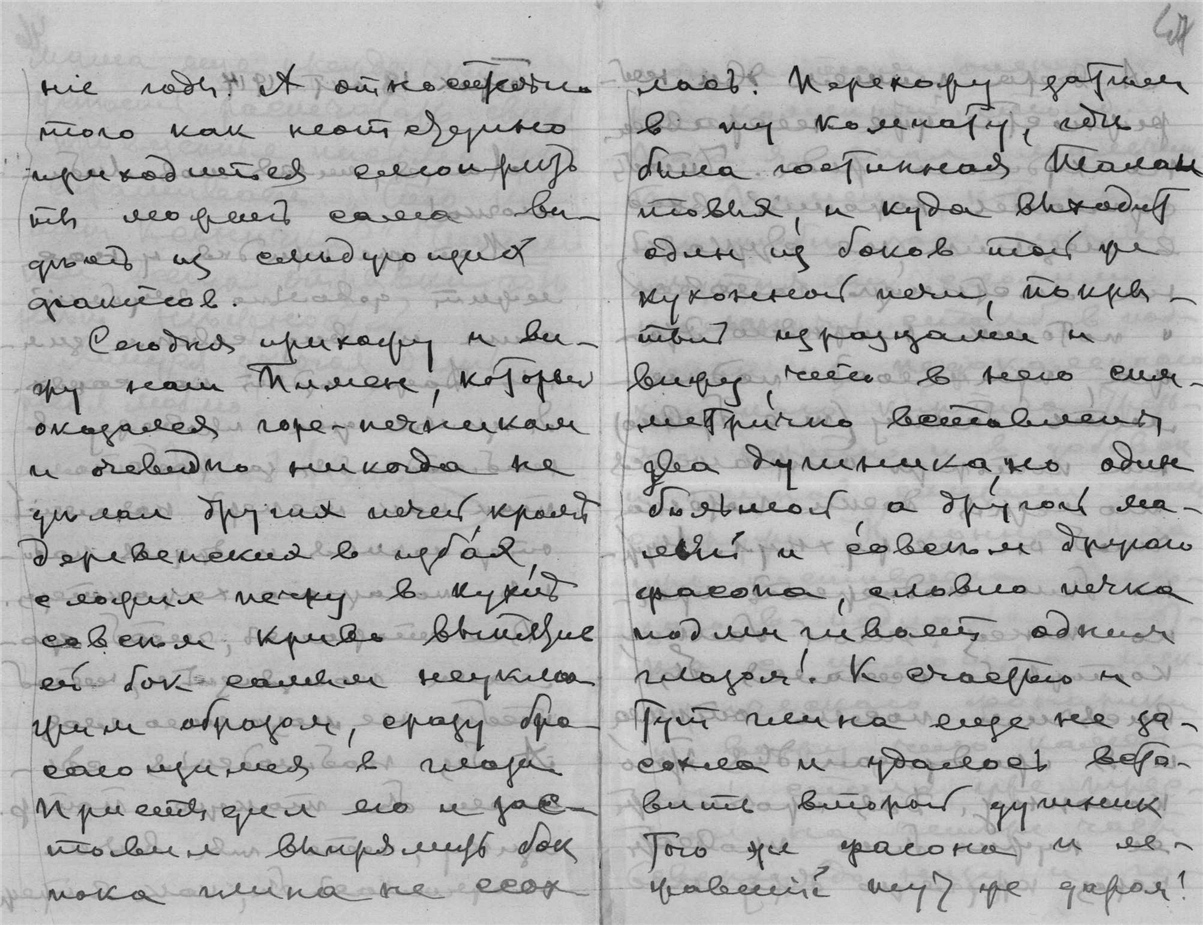 ніе годы. А относительно
того как неотступно
приходится смотрѣть
ты можешь сама ви-
дѣть из слѣдующих
фактов.
Сегодня прихожу и ви-
жу наш Пимен, который
оказался горе-печником
и очевидно никогда не
дѣлал других печей, кромѣ
деревенских в избах,
сложил печку в кухнѣ
совсѣм криво выпятив
ей бок самым неуклю
жим образом, сразу бро-
сающимся в глаза
Пристыдил его и зас-
тавил выпрямить бок
пока глина не ссох-
лась. Перехожу затѣм
в ту комнату, гдѣ
была гостинная Талан
товых, и куда выходит
один из боков той же
кухонной печи, покры-
тый изразцами и
вижу, что в него сим-
метрично вставлены
два душника, но один
большой, а другой ма-
лый и совсѣм другого
фасона, словно печка
подмигивает одним
глазом! К счастью и
тут глина еще не за-
сохла и удалось вста-
вить второй душник
того же фасона и
тут же даром!